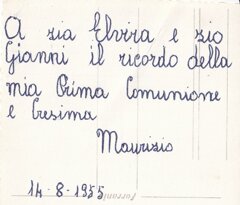 A zia Elvira e zio
Gianni il ricordo della
mia Prima Comunione
e Cresima
Maurizio
14-8-1955
Ferrania